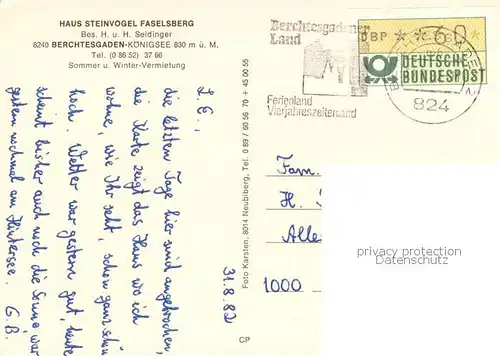 HAUS STEINVOGEL FASELSBERG
Bes. H. u. H. Seidinger
8240 BERCHTESGADEN-KÖNIGSEE 830 m ü. M.
Tel. (0 86 52) 37 66
Sommer u. Winter-Vermietung
31.8.82
L. E.,
die letzten Tage hier sind angebrochen,
die Karte zeigt das Haus wo ich
wohne, wie Ihr seht, schon ganz schön
hoch. Wetter war gestern gut, heute
scheint bisher auch noch die Sonne, war
gestern nochmal am Hintersee. G.B.
Foto Karsten, 8014 Neubiberg, Tel. 0 89 / 60 56 70 + 45 00 55
CP
Berchtesgadener
Land
Ferienland
Vierjahreszeitenland
DBP **60
DEUTSCHE
BUNDESPOST
824
Fam.
H.
Alle
1000
privacy protection
Datenschutz